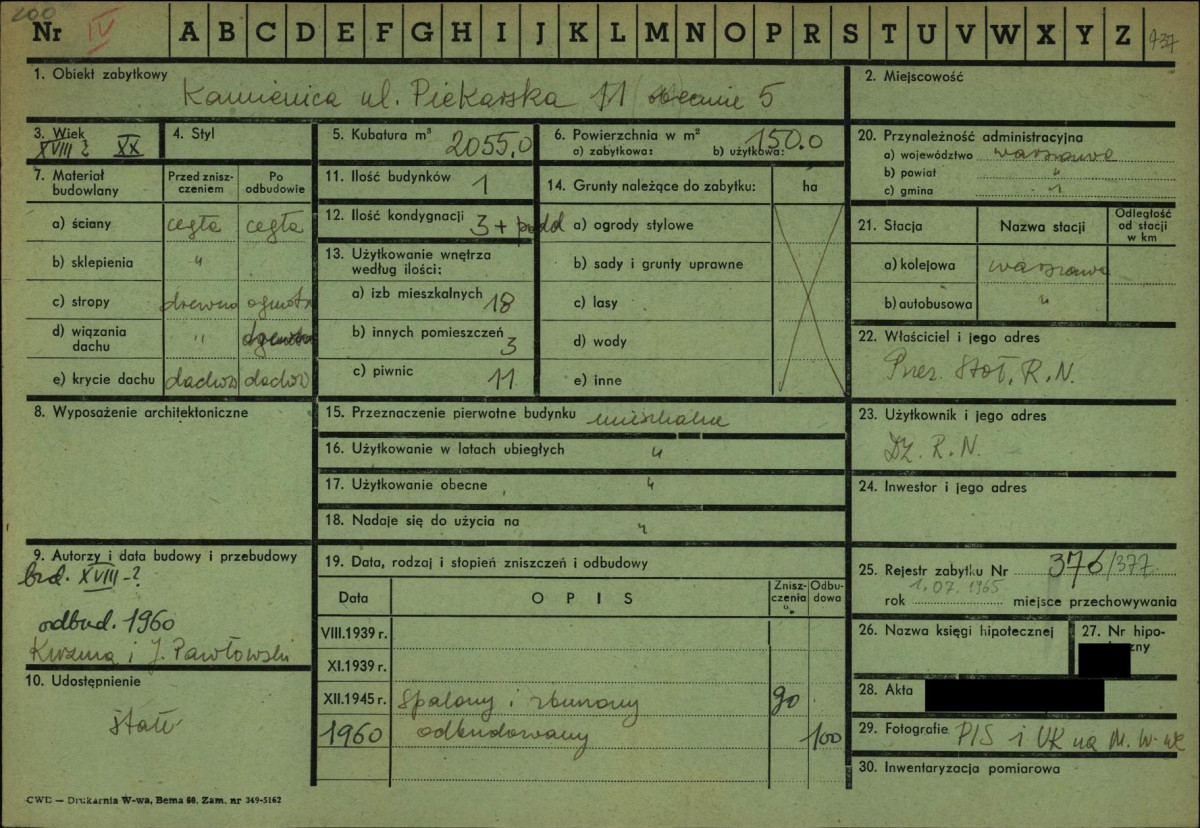 200
Nr IV A B C D E F G H I J K L M N O P R S T U V W X Y Z 437
1. Obiekt zabytkowy
Kamienica ul. Piekarska 11 (obecnie 5
2. Miejscowość
3. Wiek
XVIII ? XX
4. Styl
5. Kubatura m³
2055,0
6. Powierzchnia w m²
a) zabytkowa: b) użytkowa:
150.0
7. Materiał budowlany
Przed znisz-
czeniem
Po
odbudowie
a) ściany cegła cegła
b) sklepienia "
c) stropy drewno ogniotr
d) wiązania
dachu "
e) krycie dachu dachów dachów
8. Wyposażenie architektoniczne
9. Autorzy i data budowy i przebudowy
bud. XVIII-?
odbud. 1960
Kuzma i J. Pawłowski
10. Udostępnienie
stałe
11. Ilość budynków 1
12. Ilość kondygnacji 3 + podd
13. Użytkowanie wnętrza
według ilości:
a) izb mieszkalnych 18
b) innych pomieszczeń 3
c) piwnic 11
14. Grunty należące do zabytku: ha
a) ogrody stylowe
b) sady i grunty uprawne
c) lasy
d) wody
e) inne
15. Przeznaczenie pierwotne budynku mieszkalne
16. Użytkowanie w latach ubiegłych "
17. Użytkowanie obecne "
18. Nadaje się do użycia na "
19. Data, rodzaj i stopień zniszczeń i odbudowy
Data OPIS Znisz-
czenia
% Odbu-
dowa
VIII.1939 r.
XI.1939 r.
XII.1945 r. spalony i zburzony 90
1960 odbudowany 100
20. Przynależność administracyjna
a) województwo warszawa
b) powiat "
c) gmina "
21. Stacja Nazwa stacji Odległość
od stacji
w km
a) kolejowa warszawa
b) autobusowa "
22. Właściciel i jego adres
Prez. Stoł. R.N.
23. Użytkownik i jego adres
Dz. R.N.
24. Inwestor i jego adres
25. Rejestr zabytku Nr 376/377
rok 1.07.1965 miejsce przechowywania
26. Nazwa księgi hipotecznej
27. Nr hipo-
zny
28. Akta
29. Fotografie PIS i UK na M. W-wę
30. Inwentaryzacja pomiarowa
CWD — Drukarnia W-wa, Bema 60. Zam. nr 349-5162